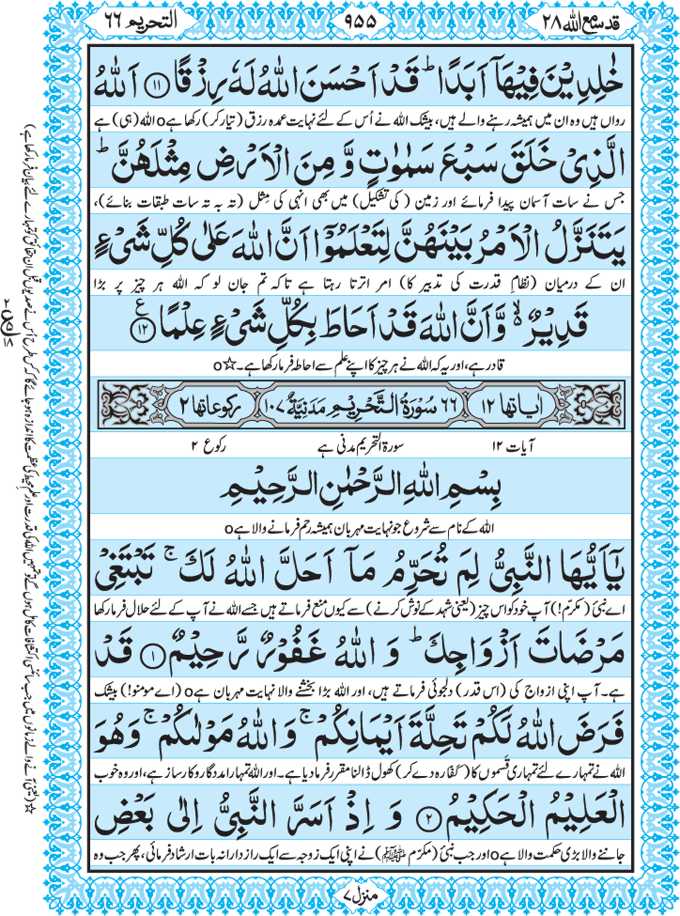 قد سمع اللہ ۲۸
۹۵۵
التحریم ۶۶
خٰلِدِیْنَ فِیْهَاۤ اَبَدًا ؕ قَدْ اَحْسَنَ اللّٰهُ لَهٗ رِزْقًا ۝۱۱ اَللّٰهُ
رواں ہیں وہ ان میں ہمیشہ رہنے والے ہیں، بیشک اللہ نے اُس کے لئے نہایت عمدہ رزق (تیار کر) رکھا ہے o اللہ (ہی) ہے
الَّذِیْ خَلَقَ سَبْعَ سَمٰوٰتٍ وَّ مِنَ الْاَرْضِ مِثْلَهُنَّ ؕ
جس نے سات آسمان پیدا فرمائے اور زمین (کی تشکیل) میں بھی انہی کی مِثل (تہ بہ تہ سات طبقات بنائے)،
یَتَنَزَّلُ الْاَمْرُ بَیْنَهُنَّ لِتَعْلَمُوْۤا اَنَّ اللّٰهَ عَلٰى كُلِّ شَیْءٍ
ان کے درمیان (نظامِ قدرت کی تدبیر کا) امر اترتا رہتا ہے تاکہ تم جان لو کہ اللہ ہر چیز پر بڑا
قَدِیْرٌ ۙ۬ وَّ اَنَّ اللّٰهَ قَدْ اَحَاطَ بِكُلِّ شَیْءٍ عِلْمًا ۝۱۲ ع
قادر ہے، اور یہ کہ اللہ نے ہر چیز کا اپنے علم سے احاطہ فرما رکھا ہے۔☆o
اٰیاتها ۱۲ ۶۶ سُوْرَةُ التَّحْرِیْمِ مَدَنِیَّةٌ ۱۰۷ رکوعاتها ۲
آیات ۱۲ سورۃ التحریم مدنی ہے رکوع ۲
بِسْمِ اللّٰهِ الرَّحْمٰنِ الرَّحِیْمِ
اللہ کے نام سے شروع جو نہایت مہربان ہمیشہ رحم فرمانے والا ہے o
یٰۤاَیُّهَا النَّبِیُّ لِمَ تُحَرِّمُ مَاۤ اَحَلَّ اللّٰهُ لَكَ ۚ تَبْتَغِیْ
اے نبیِّ (مکرّم!) آپ خود کو اس چیز (یعنی شہد کے نوش کرنے) سے کیوں منع فرماتے ہیں جسے اللہ نے آپ کے لئے حلال فرما رکھا
مَرْضَاتَ اَزْوَاجِكَ ؕ وَ اللّٰهُ غَفُوْرٌ رَّحِیْمٌ ۝۱ قَدْ
ہے۔ آپ اپنی ازواج کی (اس قدر) دلجوئی فرماتے ہیں، اور اللہ بڑا بخشنے والا نہایت مہربان ہے o (اے مومنو!) بیشک
فَرَضَ اللّٰهُ لَكُمْ تَحِلَّةَ اَیْمَانِكُمْ ۚ وَ اللّٰهُ مَوْلٰىكُمْ ۚ وَ هُوَ
اللہ نے تمہارے لئے تمہاری قَسموں کا (کفارہ دے کر) کھول ڈالنا مقرر فرما دیا ہے۔ اور اللہ تمہارا مددگار و کارساز ہے، اور وہ خوب
الْعَلِیْمُ الْحَكِیْمُ ۝۲ وَ اِذْ اَسَرَّ النَّبِیُّ اِلٰى بَعْضِ
جاننے والا بڑی حکمت والا ہے o اور جب نبیِّ (مکرّم ﷺ) نے اپنی ایک زوجہ سے ایک رازدارانہ بات ارشاد فرمائی، پھر جب وہ
منزل ۷